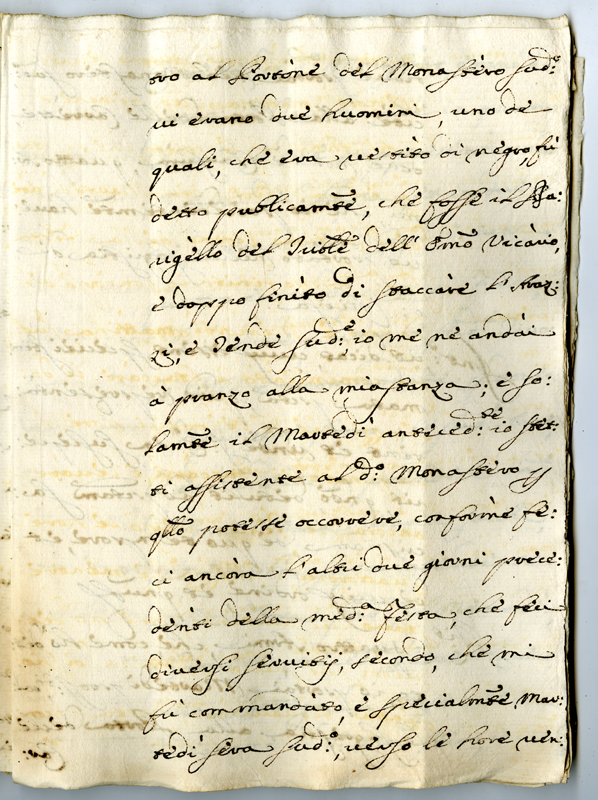 tro al Portone del Monastero sud.o
vi erano due huomini, uno de
quali, che era vestito di negro, fù
detto publicam.te, che fosse il Ba:
rigello del Trib.le dell' Em̃o Vicario,
e doppo finito di staccare l'Araz:
zi, e Tende sud.e, io me ne andai
à pranzo alla mia stanza; e so:
lam.te il Martedi anteced.te: io stet:
ti assistente al d.o Monastero p
q̃llo potesse occorrere, conforme fe:
ci ancora l'altri due giorni prece:
denti della med.a Festa, che feci
diversi servitij, secondo, che mi
fù commandato, e specialm.te Mar:
tedi sera sud.o, verso le hore ven: